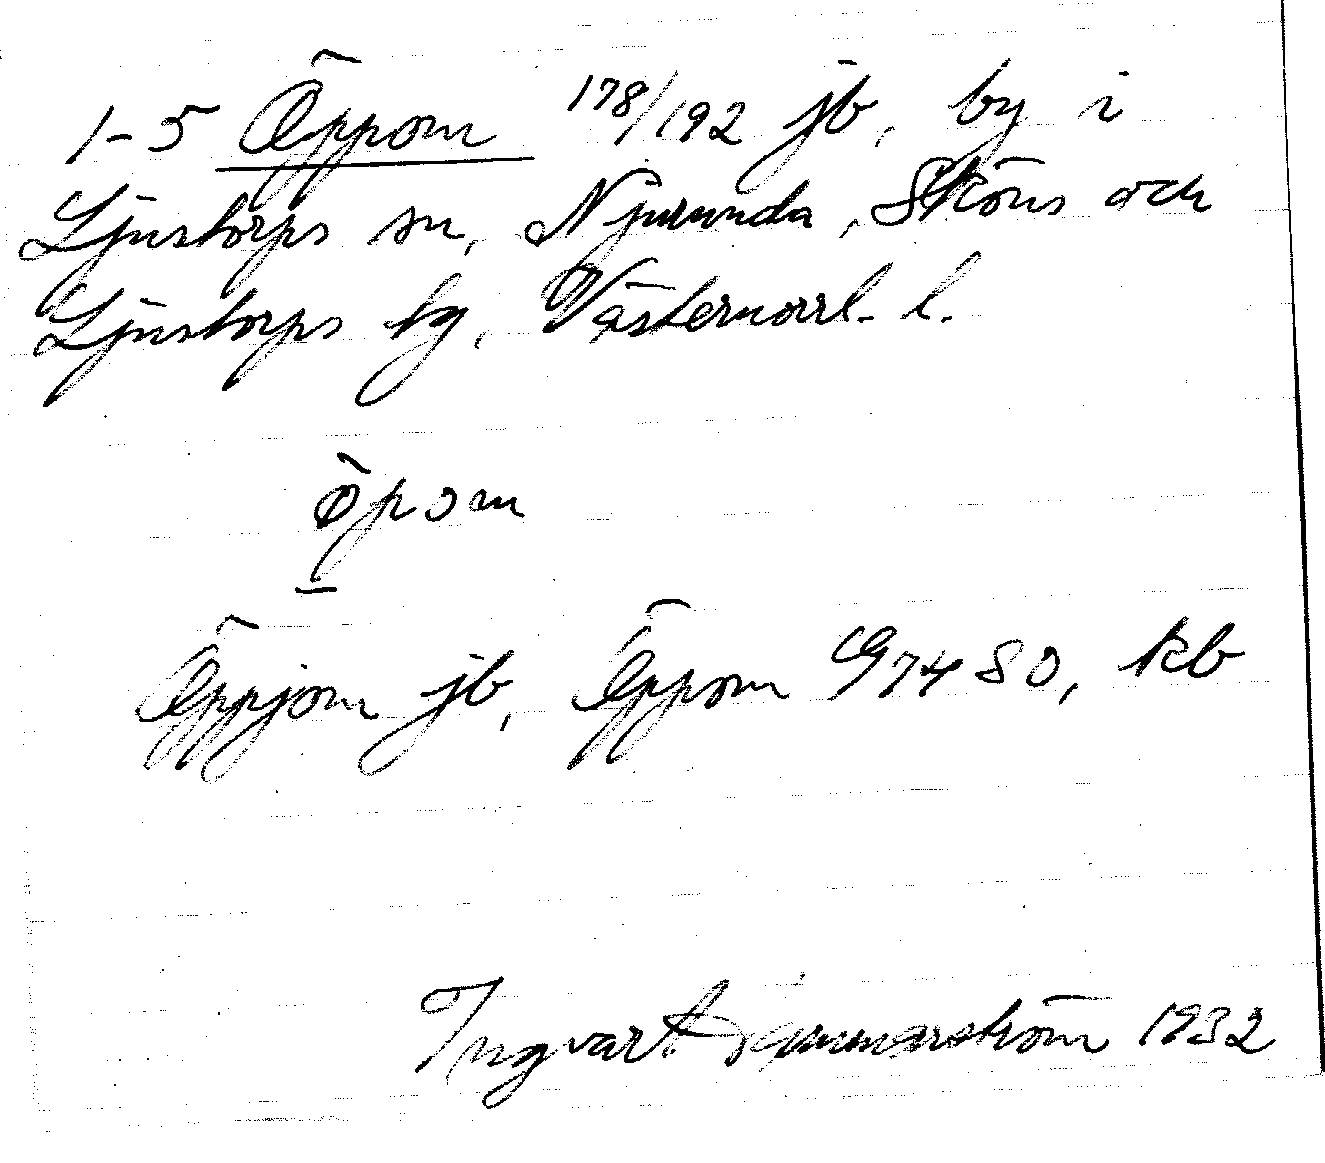 1-5 Öppom 178/192 jb, by i
Ljustorps sn, Njurunda, Sköns och
Ljustorps tg, Västernorrl. l.
öpom
Öppjom jb, Öppom G7480, kb
Ingvar Hammarström 1932